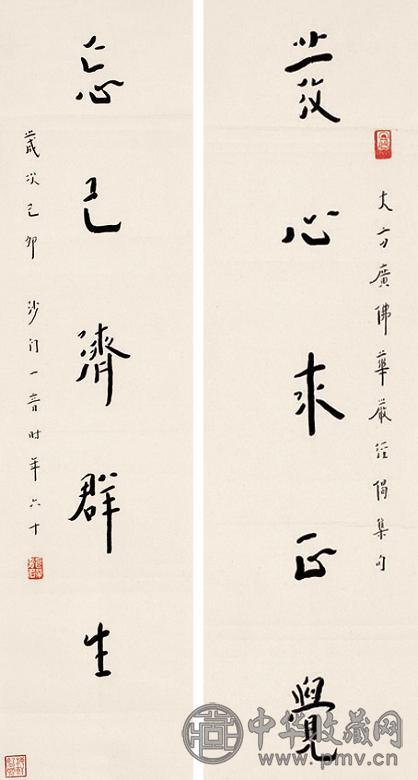 大方廣佛華嚴經偈集句
發心求正覺
忘己濟群生
歲次己卯 沙門一音時年六十
中华收藏网
www.pmv.cn